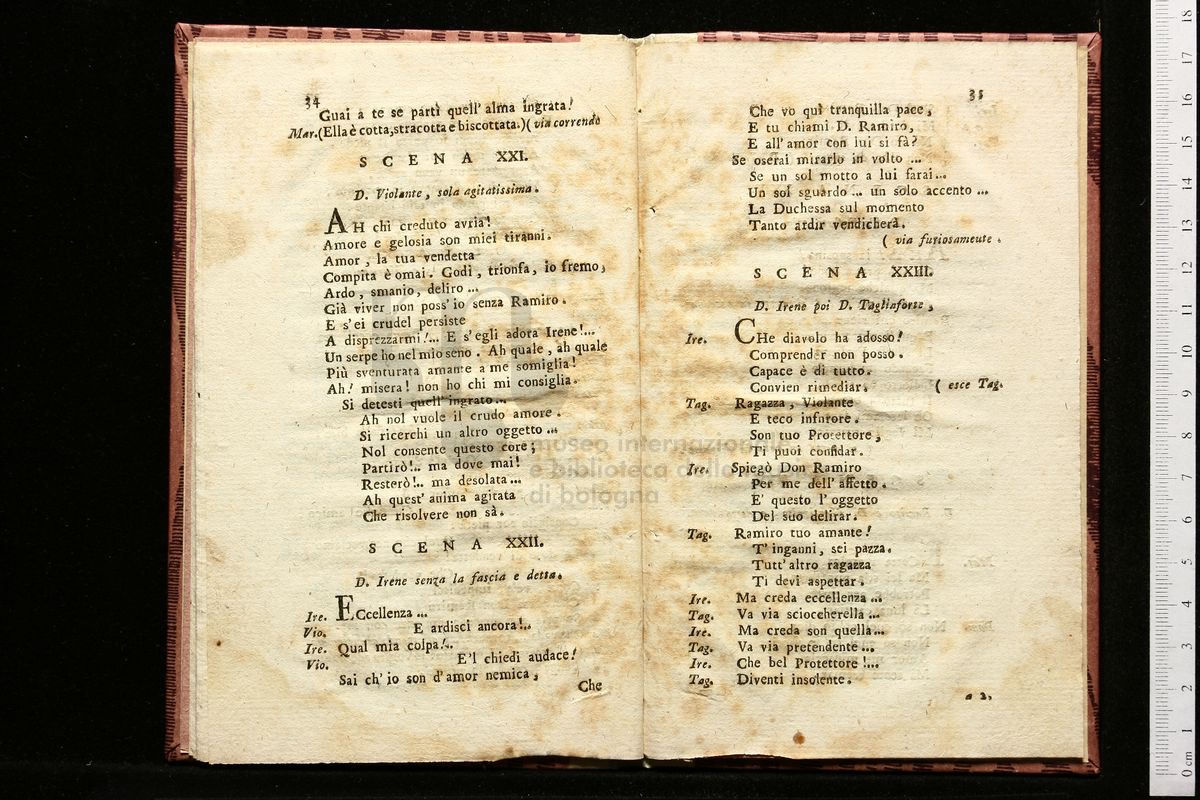 34
Guai a te se partì quell' alma ingrata!
Mar. (Ella è cotta, stracotta e biscottata.) ( via correndo
SCENA XXI.
D. Violante, sola agitatissima.
AH chi creduto avria!
Amore e gelosia son miei tiranni.
Amor, la tua vendetta
Compita è omai. Godi, trionfa, io fremo,
Ardo, smanio, deliro ...
Già viver non poss' io senza Ramiro.
E s' ei crudel persiste
A disprezzarmi!... E s' egli adora Irene!...
Un serpe ho nel mio seno. Ah quale, ah quale
Più sventurata amante a me somiglia!
Ah! misera! non ho chi mi consiglia.
Si detesti quell' ingrato...
Ah nol vuole il crudo amore.
Si ricerchi un altro oggetto ...
Nol consente questo core;
Partirò!.. ma dove mai!
Resterò!.. ma desolata...
Ah quest' anima agitata
Che risolvere non sà.
SCENA XXII.
D. Irene senza la fascia e detta.
Ire. ECcellenza ...
Vio. E ardisci ancora!..
Ire. Qual mia colpa!..
Vio. E'l chiedi audace!
Sai ch' io son d' amor nemica,
Che
35
Che vo quì tranquilla pace,
E tu chiami D. Ramiro,
E all' amor con lui si fà?
Se oserai mirarlo in volto ...
Se un sol motto a lui farai...
Un sol sguardo ... un solo accento ...
La Duchessa sul momento
Tanto ardir vendicherà.
( via furiosameute.
SCENA XXIII.
D. Irene poi D. Tagliaforte,
Ire. CHe diavolo ha adosso!
Comprender non posso.
Capace è di tutto.
Convien rimediar. ( esce Tag.
Tag. Ragazza, Violante
E teco infurore.
Son tuo Protettore,
Ti puoi confidar.
Ire. Spiegò Don Ramiro
Per me dell' affetto.
E' questo l' oggetto
Del suo delirar.
Tag. Ramiro tuo amante!
T' inganni, sei pazza.
Tutt' altro ragazza
Ti devi aspettar.
Ire. Ma creda eccellenza ...
Tag. Va via scioccherella ...
Ire. Ma creda son quella...
Tag. Va via pretendente ...
Ire. Che bel Protettore!...
Tag. Diventi insolente.
a 2.
museo internazionale
e biblioteca della
di bologna
0 cm 1 2 3 4 5 6 7 8 9 10 11 12 13 14 15 16 17 18